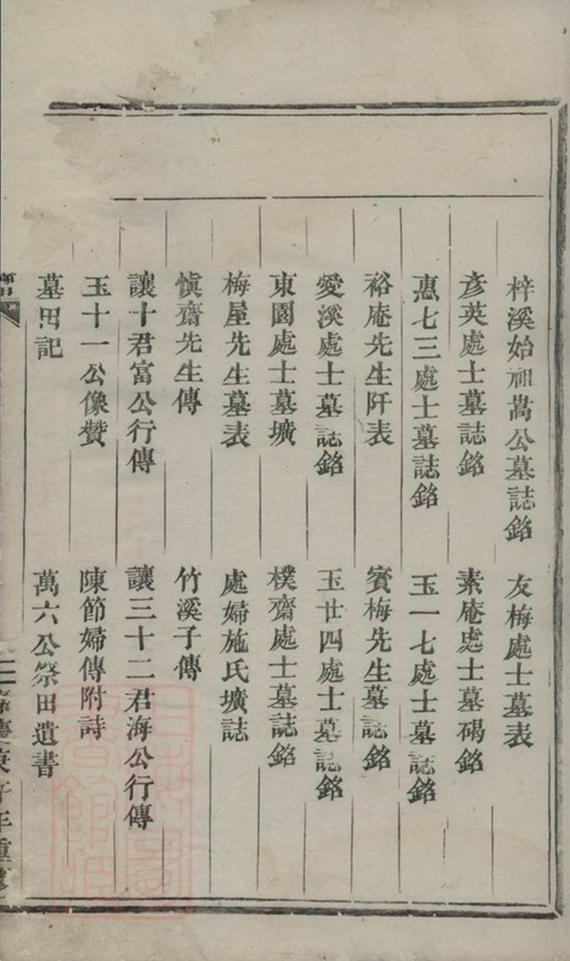 梓溪始祖萬公墓誌銘 友梅處士墓表
彥英處士墓誌銘 素庵處士墓碣銘
惠七三處士墓誌銘 玉一七處士墓誌銘
裕庵先生阡表 賓梅先生墓誌銘
愛溪處士墓誌銘 玉廿四處士墓誌銘
東園處士墓壙 樸齋處士墓誌銘
梅屋先生墓表 處婦施氏壙誌
愼齋先生傳 竹溪子傳
讓十君富公行傳 讓三十二君海公行傳
玉十一公像贊 陳節婦傳附詩
墓田記 萬六公祭田遺書